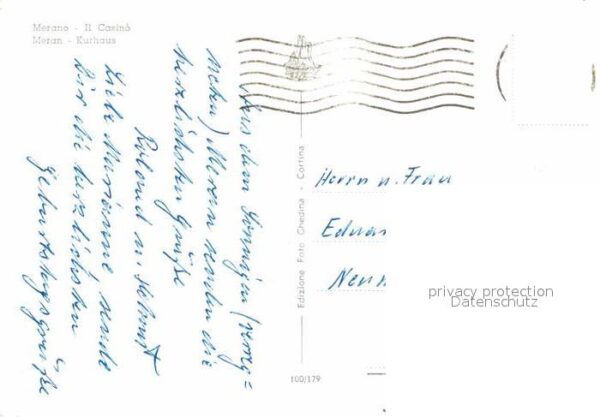 Merano - Il Casinò
Meran - Kurhaus
Aus dem sonnigen (
) Meran senden die
herzlichsten Grüße
Roland u.
Liebe Marianne sende
Dir die herzlichsten
Geburtstagsgrüße
Edizione Foto Ghedina - Cortina
Herrn u. Frau
Edua
Neun
privacy protection
Datenschutz
100/179